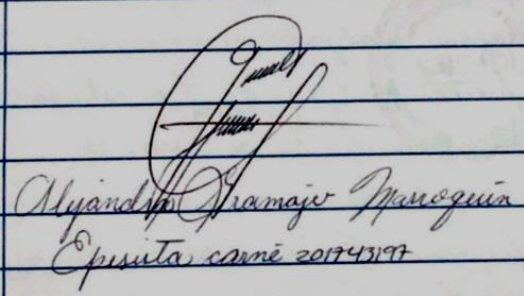 Alejandra Aramajo Marroquín
Epesista carné 201743197